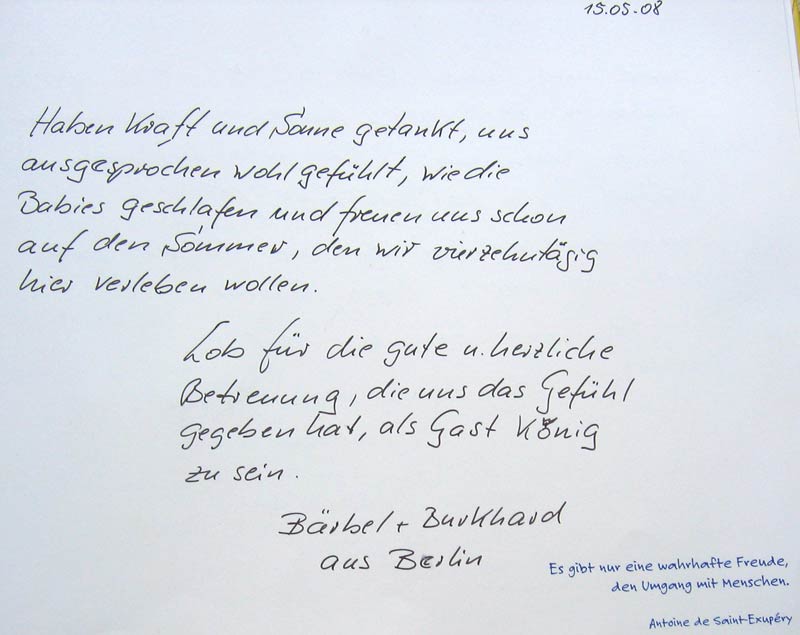 15.05-08
Haben Kraft und Sonne getankt, uns
ausgesprochen wohl gefühlt, wie die
Babies geschlafen und freuen uns schon
auf den Sommer, den wir vierzehntägig
hier verleben wollen.
Lob für die gute u. herzliche
Betreuung, die uns das Gefühl
gegeben hat, als Gast König
zu sein.
Bärbel + Burkhard
aus Berlin
Es gibt nur eine wahrhafte Freude,
den Umgang mit Menschen.
Antoine de Saint-Exupéry